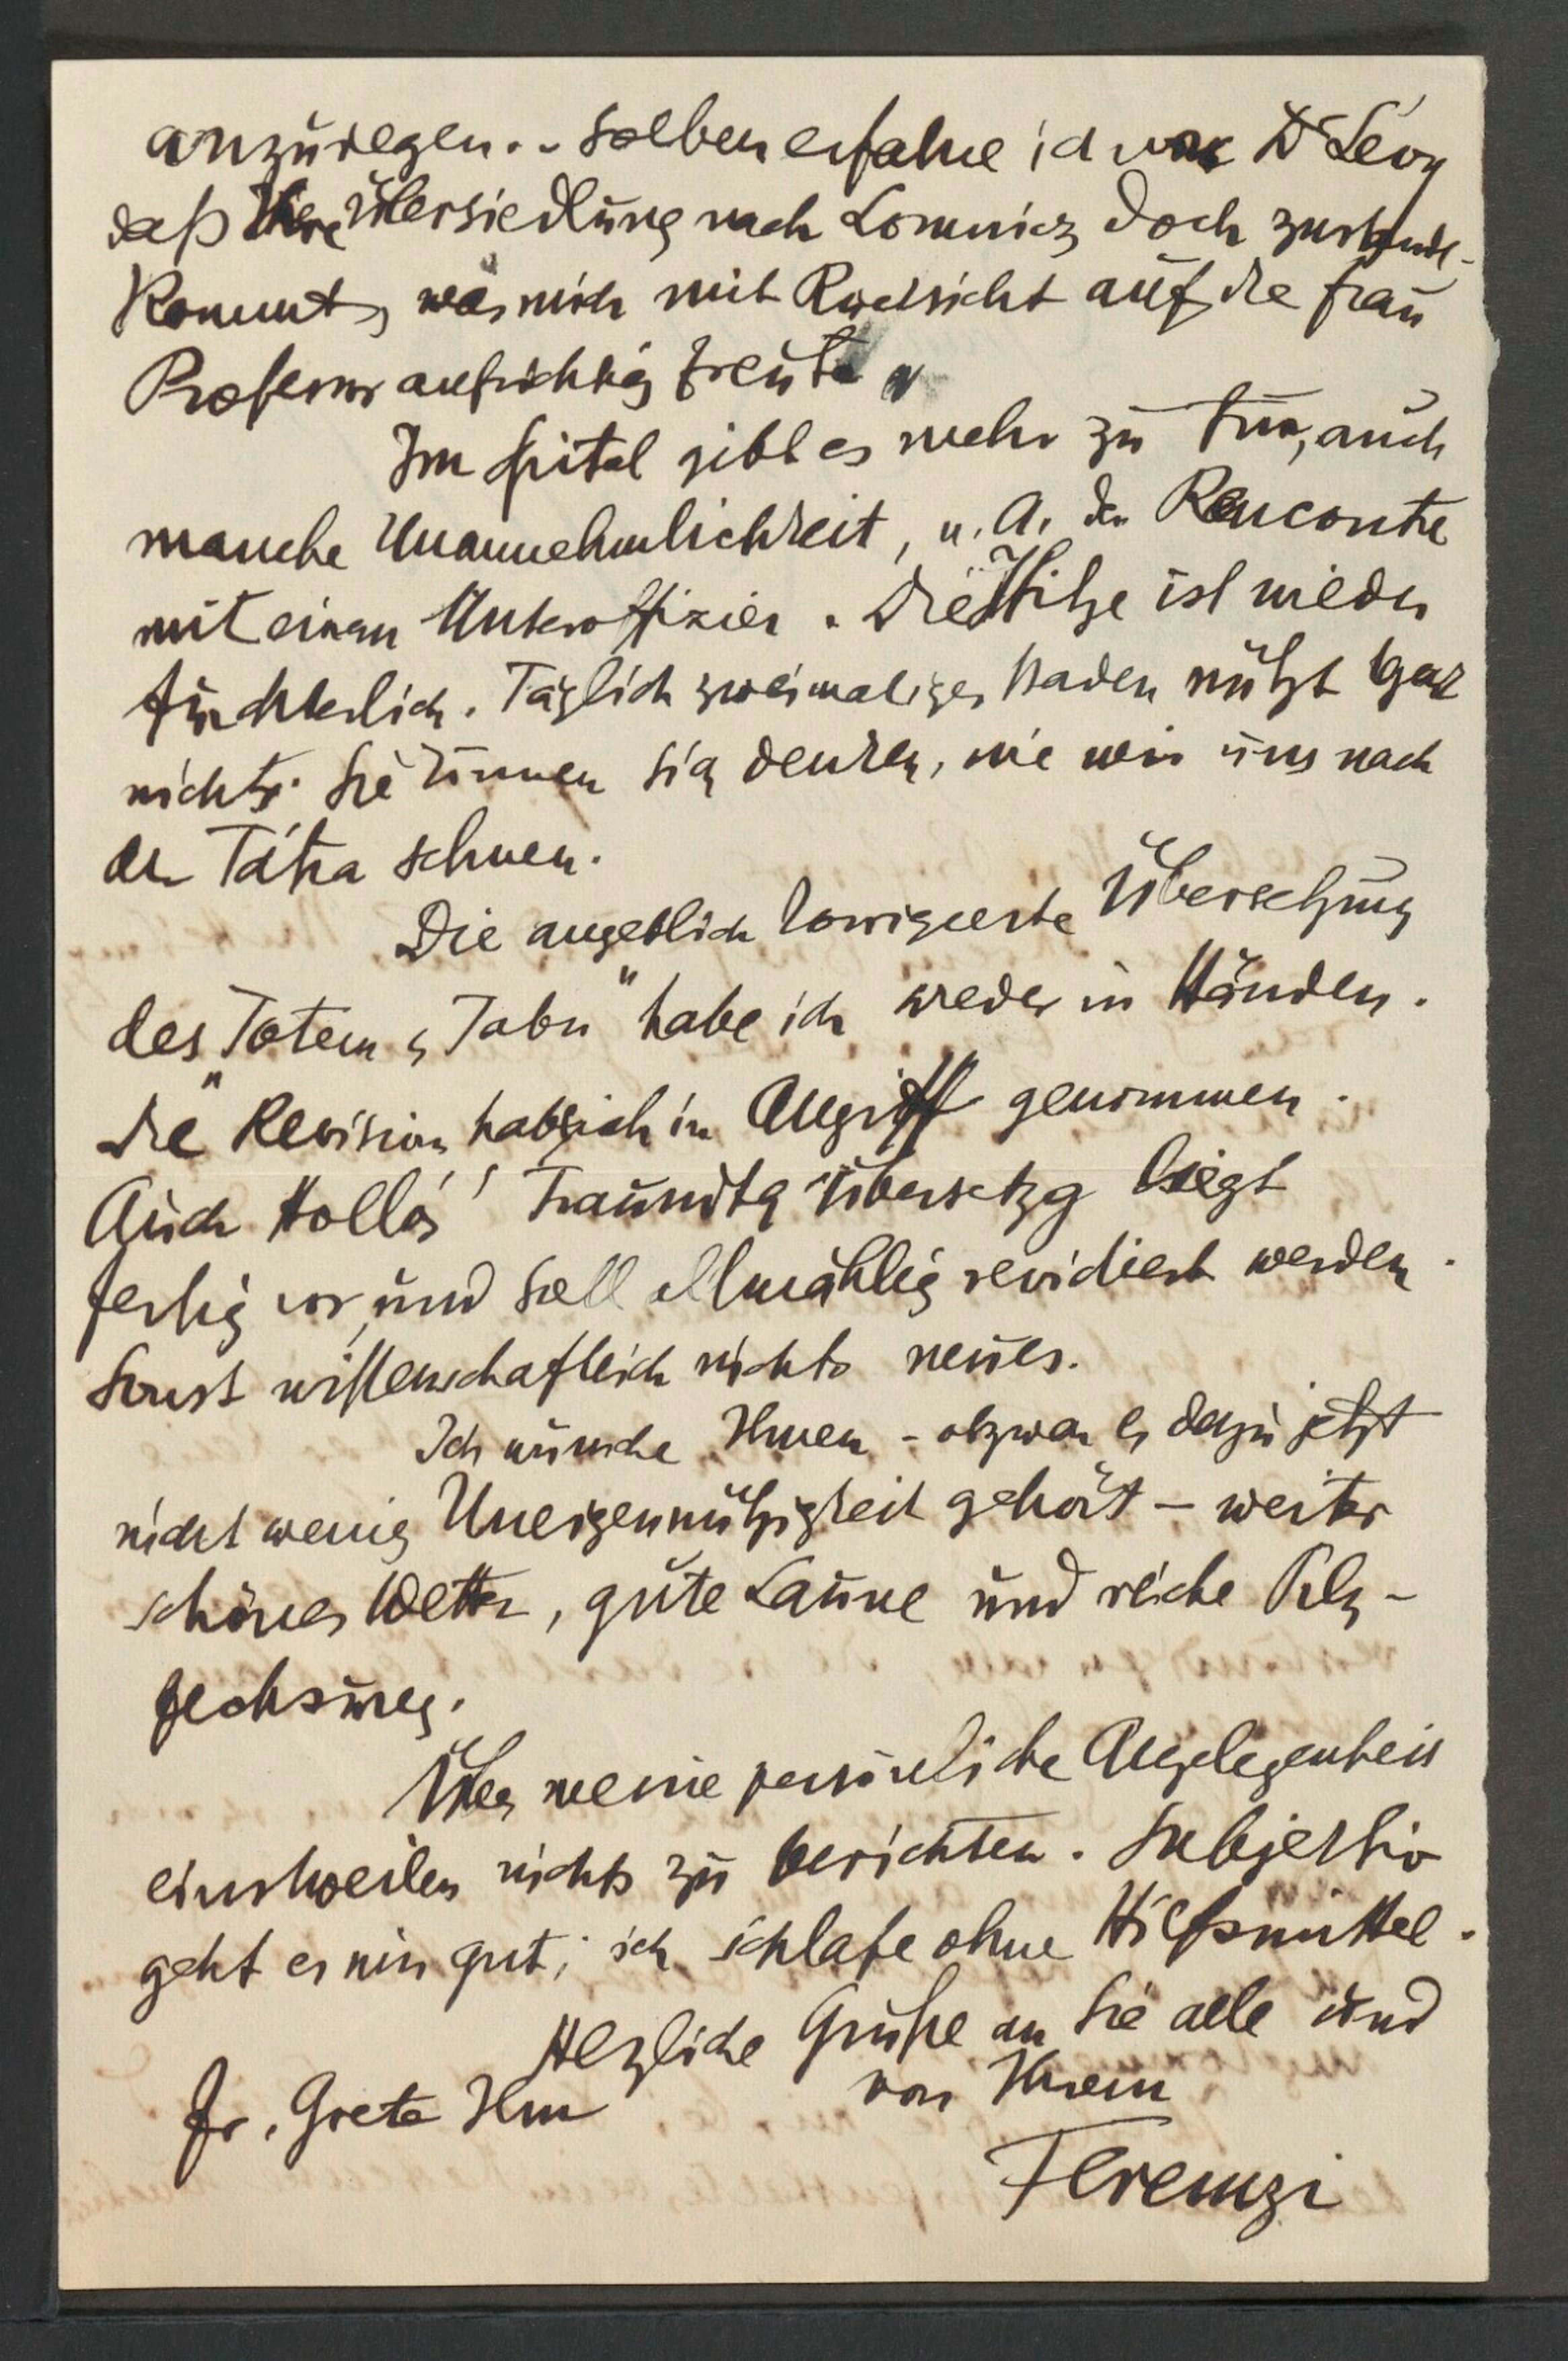 anzuregen. – Soeben erfahre ich von Dr Lévy
daß Ihre Übersiedlung nach Lomnicz doch zustande-
kommt, was mich mit Rücksicht auf die Frau
Professor aufrichtig freute.
Im Spital gibt es mehr zu tun, auch
manche Unannehmlichkeit, u. A. den Renconter
mit einem Unteroffizier. Die Hitze ist wieder
fürchterlich. Täglich zweimaliges Baden nützt gar
nichts. Sie können sich denken, wie wir uns nach
der Tátra sehnen.
Die angeblich korrigierte Übersetzung
des „Totem u Tabu“ habe ich wieder in Händen.
Die Revision habe ich in Angriff genommen.
Auch Hollós' Traumdtg Übersetzg liegt
fertig vor, und soll allmählig revidiert werden.
Sonst wissenschaftlich nichts neues.
Ich wünsche Ihnen – obzwar es dazu jetzt
nicht wenig Uneigennützigkeit gehört – weiter
schönes Wetter, gute Laune und reiche Pilz-
fechsung.
Über meine persönliche Angelegenheit
einstweilen nichts zu berichten. Subjektiv
geht es mir gut; ich schlafe ohne Hilfsmittel.
Herzliche Grüße an Sie alle und
Fr. Grete Ilm
von Ihrem
Ferenczi